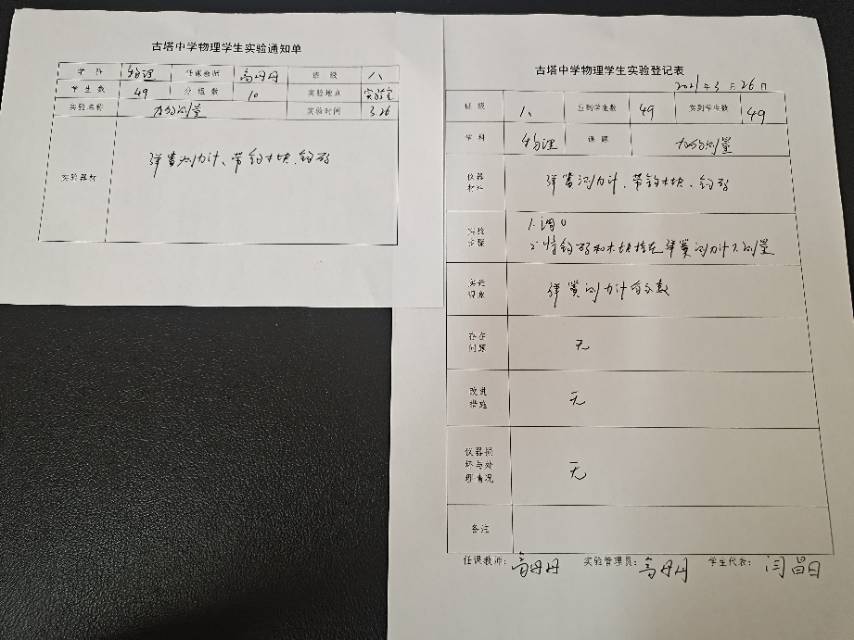 古塔中学物理学生实验通知单
学科 物理 任课教师 高丹丹 班级 八
学生数 49 分组数 10 实验地点 实验室
实验名称 力的测量 实验时间 3.26
实验器材 弹簧测力计、带钩木块、钩码
古塔中学物理学生实验登记表
2021年3月26日
班级 八 应到学生数 49 实到学生数 49
学科 物理 课题 力的测量
仪器
材料
弹簧测力计、带钩木块、钩码
实验
步骤
1.调0
2.将钩码和木块挂在弹簧测力计下测量
实验
现象
弹簧测力计有示数
存在
问题
无
改进
措施
无
仪器损
坏与处
理情况
无
备注
任课教师：高丹丹 实验管理员：高丹丹 学生代表：闫昌日